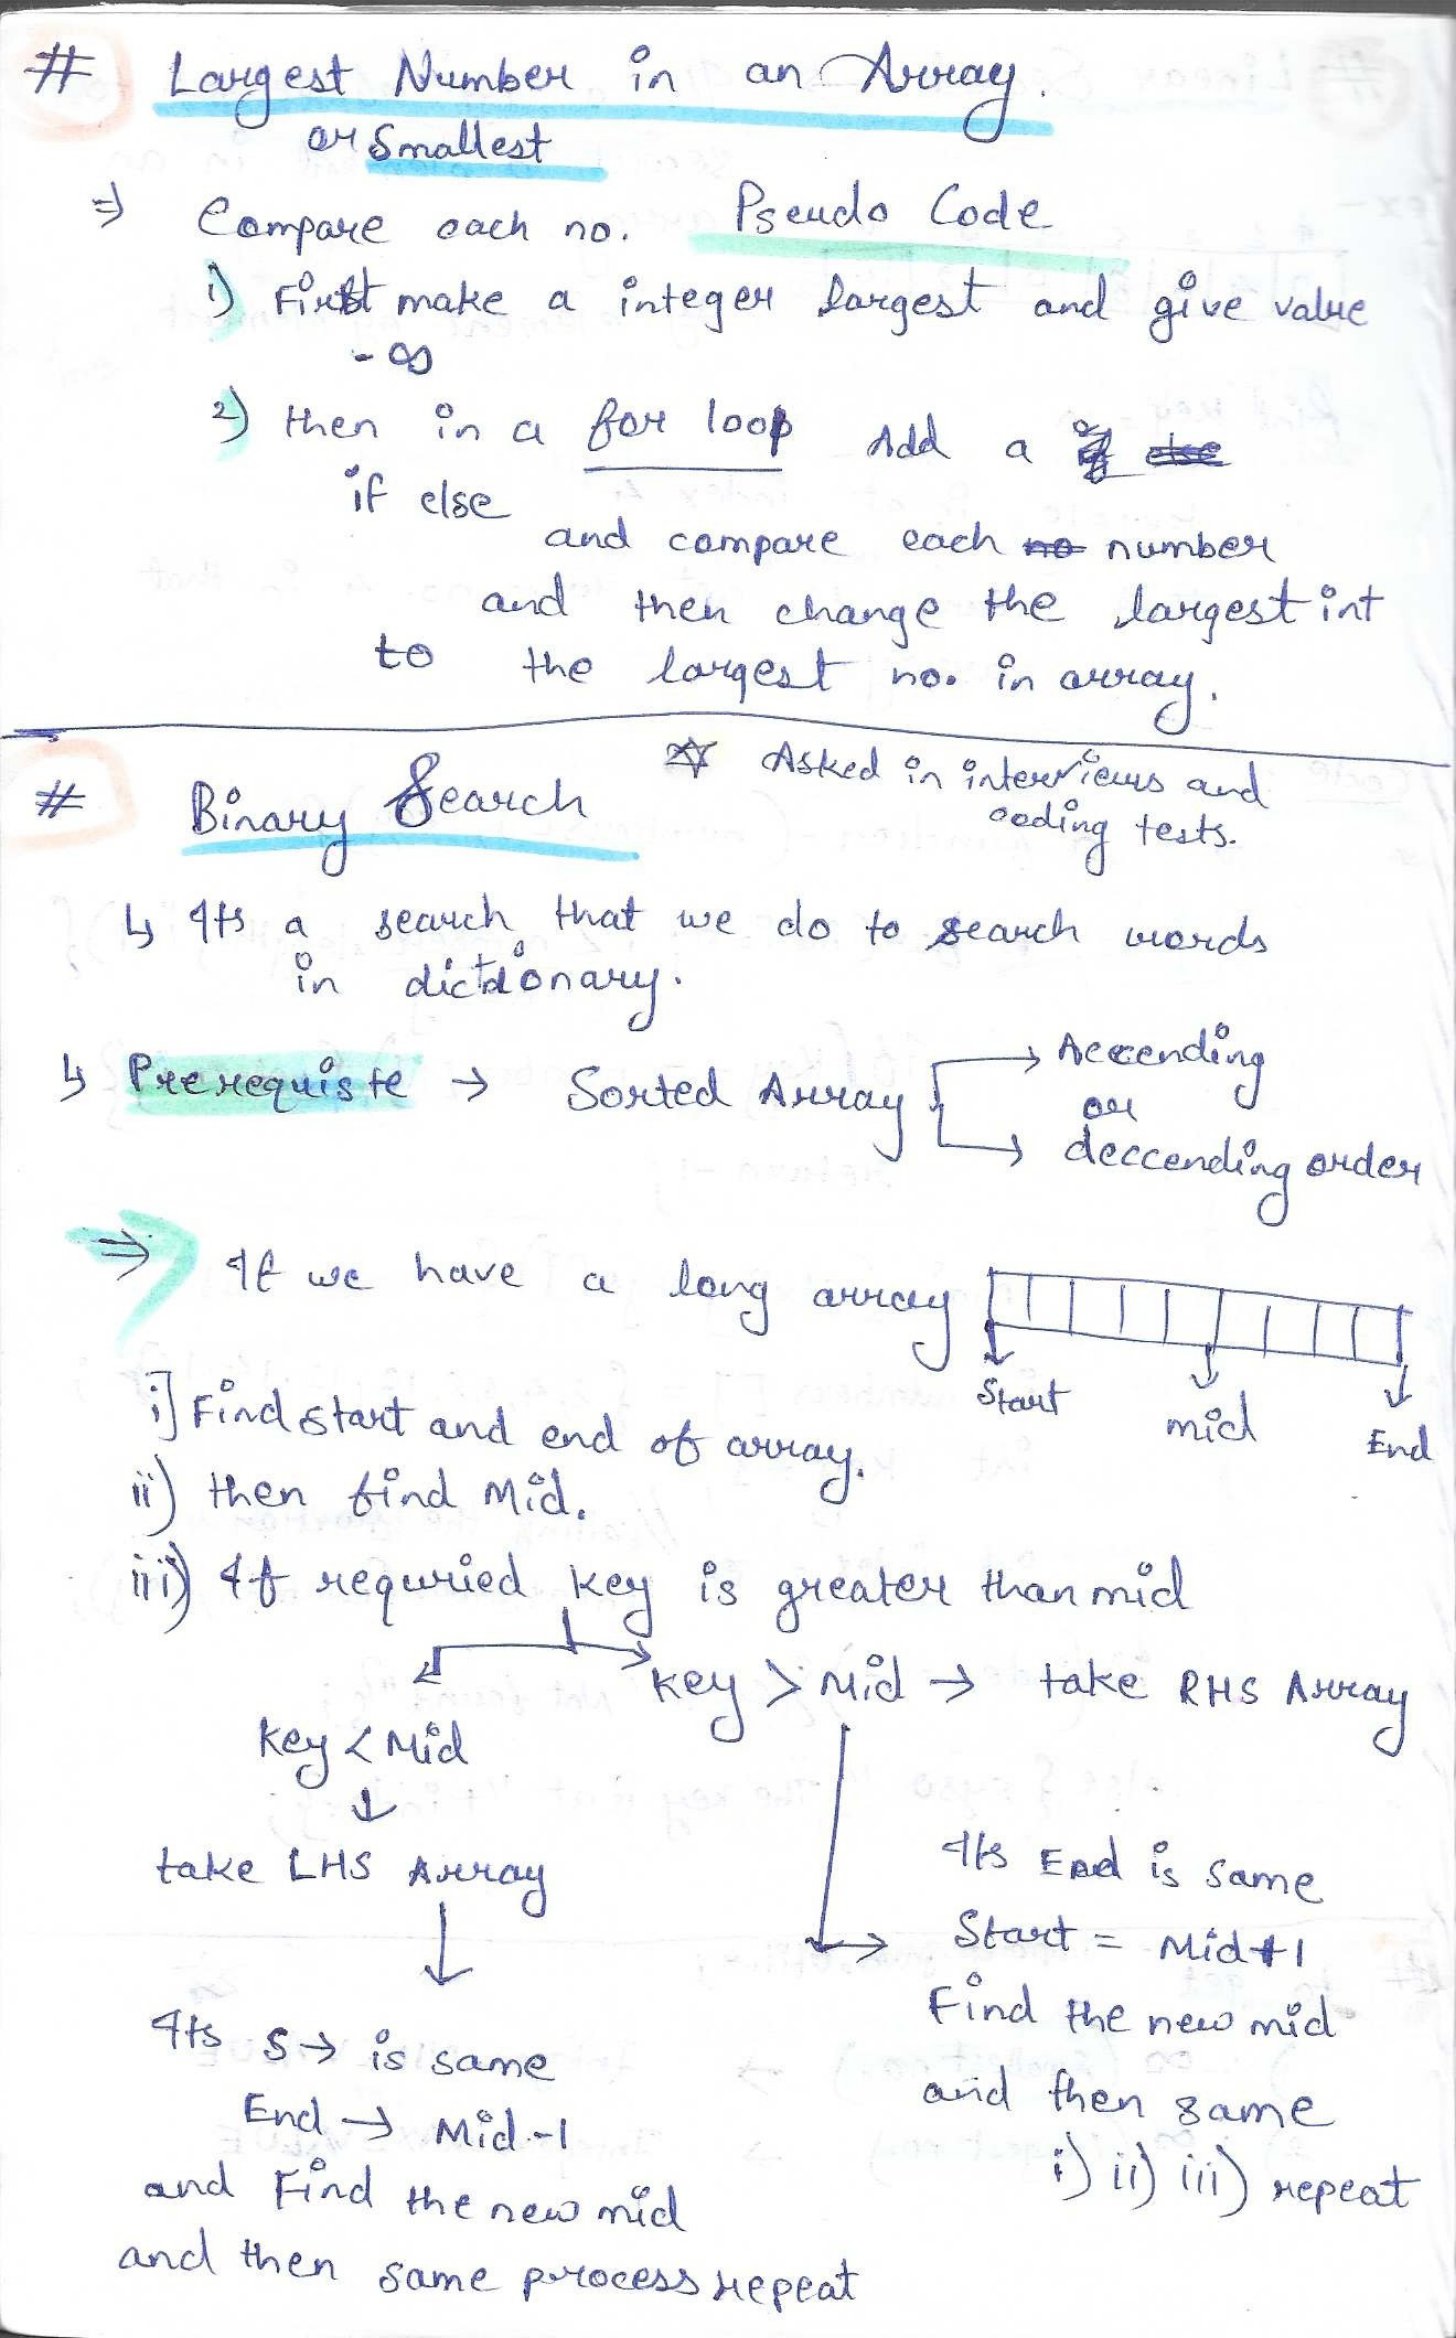 # Largest Number in an Array.
or Smallest
⇒ Compare each no. Pseudo Code
1) First make a integer largest and give value
- ∞
2) then in a for loop Add a if else
if else
and compare each no number
and then change the largest int
to the largest no. in array.
# Binary Search ☆ Asked in interviews and
coding tests.
↳ Its a search that we do to search words
in dictionary.
↳ Prerequiste → Sorted Array → Accending
or
→ deccending order
⇒ If we have a long array
Start mid End
i] Find start and end of array.
ii) then find Mid.
iii) If requried key is greater than mid
key > Mid → take RHS Array
key < Mid
↓
take LHS Array
Its End is same
Start = Mid+1
Find the new mid
and then same
i) ii) iii) repeat
Its S → is same
End → Mid-1
and Find the new mid
and then same process repeat